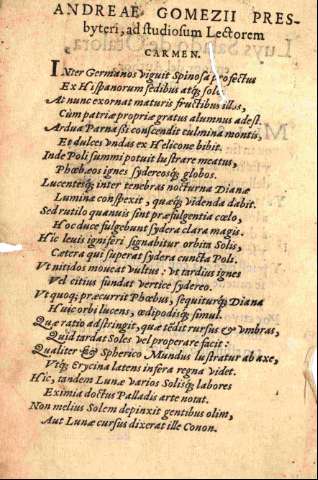 ANDREAE GOMEZII PRES-
byteri, ad studiosum Lectorem
CARMEN.
INter Germanos viguit Spinosa profectus
Ex Hispanorum sedibus atq; solo.
At nunc exornat maturis fructibus illos,
Cum patriæ propriæ gratus alumnus adest.
Ardua Parnassi conscendit culmina montis,
Et dulces vndas ex Helicone bibit.
Inde Poli summi potuit lustrare meatus,
Phœbæos ignes sydereosq; globos.
Lucentesq; inter tenebras nocturna Dianæ
Lumina conspexit, quæq; videnda dabit.
Sed rutilo quamuis sint præfulgentia cœlo,
Hoc duce fulgebunt sydera clara magis.
Hic leuis igniferi signabitur orbita Solis,
Cætera qui superat sydera cuncta Poli.
Vt nitidos moueat vultus: vt tardius ignes
Vel citius fundat vertice sydereo.
Vt quoq; præcurrit Phœbus, sequiturq; Diana
Huic orbi lucens, ædipodisq; simul.
Quæ ratio adstringit, quæ tēdit rursus & vmbras,
Quid tardat Soles vel properare facit:
Qualiter & Spherico Mundus lustratur ab axe,
Vtq; Erycina latens infera regna videt.
Hic, tandem Lunæ varios Solisq; labores
Eximia doctus Palladis arte notat.
Non melius Solem depinxit gentibus olim,
Aut Lunæ cursus dixerat ille Conon.